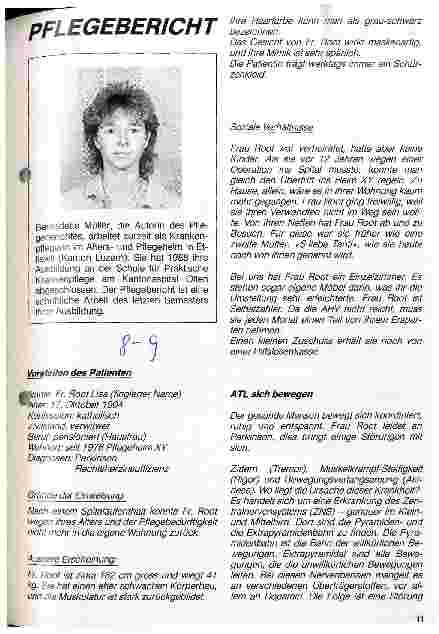 PFLEGEBERICHT
Bernadette Müller, die Autorin des Pfle-
geberichtes, arbeitet zurzeit als Kranken-
pflegerin im Alters- und Pflegeheim in Et-
tiswil (Kanton Luzern). Sie hat 1988 ihre
Ausbildung an der Schule für Praktische
Krankenpflege am Kantonsspital Olten
abgeschlossen. Der Pflegebericht ist eine
schriftliche Arbeit des letzten Semesters
ihrer Ausbildung.
8-9
Vorstellen des Patienten
Name: Fr. Root Lisa (fingierter Name)
Alter: 17. Oktober 1904
Konfession: katholisch
Zivilstand: verwitwet
Beruf: pensioniert (Hausfrau)
Wohnort: seit 1978 Pflegeheim XY
Diagnosen: Parkinson
Rechtsherzinsuffizienz
Gründe der Einweisung
Nach einem Spitalaufenthalt konnte Fr. Root
wegen ihres Alters und der Pflegebedürftigkeit
nicht mehr in die eigene Wohnung zurück.
Äussere Erscheinung
Fr. Root ist zirka 162 cm gross und wiegt 41
kg. Sie hat einen eher schwachen Körperbau,
und die Muskulatur ist stark zurückgebildet.
Ihre Haarfarbe kann man als grau-schwarz
bezeichnen.
Das Gesicht von Fr. Root wirkt maskenartig,
und ihre Mimik ist sehr spärlich.
Die Patientin trägt werktags immer ein Schür-
zenkleid.
Soziale Verhältnisse
Frau Root war verheiratet, hatte aber keine
Kinder. Als sie vor 12 Jahren wegen einer
Operation ins Spital musste, konnte man
gleich den Übertritt ins Heim XY regeln. Zu
Hause, allein, wäre es in ihrer Wohnung kaum
mehr gegangen. Frau Root ging freiwillig, weil
sie ihren Verwandten nicht im Weg sein woll-
te. Von ihren Neffen hat Frau Root ab und zu
Besuch. Für diese war sie früher wie eine
zweite Mutter. «S liebe Tanti», wie sie heute
noch von ihnen genannt wird.
Bei uns hat Frau Root ein Einzelzimmer. Es
stehen sogar eigene Möbel darin, was ihr die
Umstellung sehr erleichterte. Frau Root ist
Selbstzahler. Da die AHV nicht reicht, muss
sie jeden Monat einen Teil von ihrem Erspar-
ten nehmen.
Einen kleinen Zuschuss erhält sie noch von
einer Hilflosenkasse.
ATL sich bewegen
Der gesunde Mensch bewegt sich koordiniert,
ruhig und entspannt. Frau Root leidet an
Parkinson, dies bringt einige Störungen mit
sich.
Zittern (Tremor), Muskelkrampf-Steifigkeit
(Rigor) und Bewegungsverlangsamung (Aki-
nese). Wo liegt die Ursache dieser Krankheit?
Es handelt sich um eine Erkrankung des Zen-
tralnervensystems (ZNS) – genauer im Klein-
und Mittelhirn. Dort sind die Pyramiden- und
die Extrapyramidenbahn zu finden. Die Pyra-
midenbahn ist die Bahn der willkürlichen Be-
wegungen. Extrapyramidal sind alle Bewe-
gungen, die die unwillkürlichen Bewegungen
leiten. Bei diesen Nervenbahnen mangelt es
an verschiedenen Überträgerstoffen, vor al-
lem an Dopamin. Die Folge ist eine Störung
11